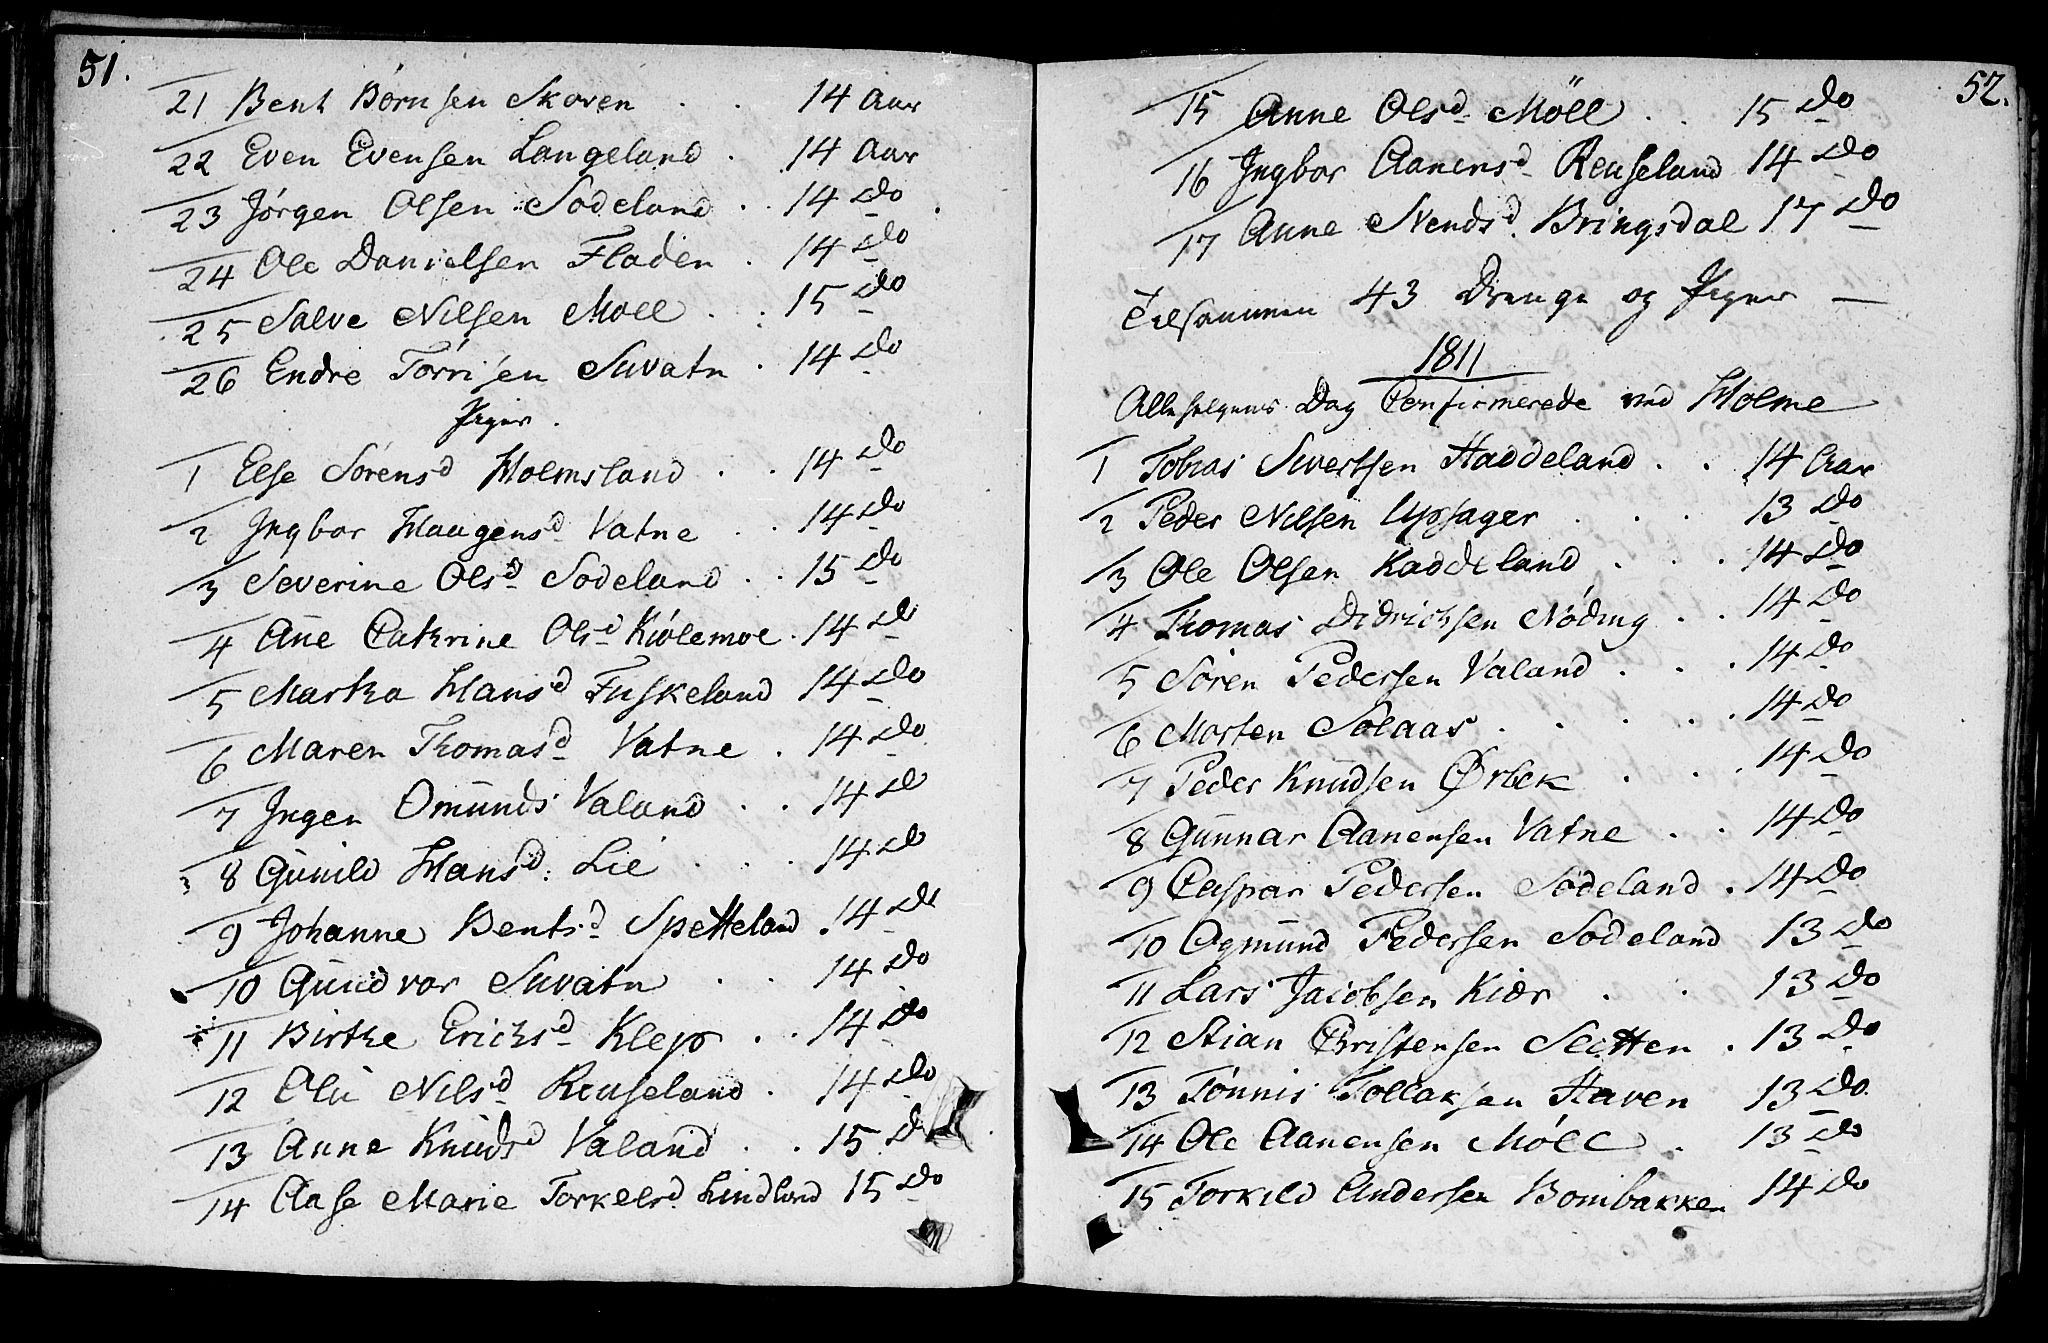 51.
21 Bent Börnsen Skoven . . 14 Aar
22 Even Evensen Langeland . 14 Aar
23 Jörgen Olsen Sodeland . . 14 Do
24 Ole Danielsen Fladen . 14 Do
25 Salve Nilsen Moll . . 15 Do
26 Endre Törrisen Suvatn . 14 Do
Piger.
1 Else Sörensd Holmsland . . 14 Do
2 Ingbor Haagensd Vatne . 14 Do
3 Severine Olsd Sodeland . . 15 Do
4 Añe Cathrine Olsd Kiölemoe . 14 Do
5 Martha Hansd Fuskeland 14 Do
6 Maren Thomasd Vatne . 14 Do
7 Ingen Omunds Valand . . 14 Do
8 Gunild Hansd: Lie . . . 14 Do
9 Johanne Bentsd Spetteland . 14 Do
10 Gundvor Suvatn . . 14 Do
11 Birthe Erichsd Klep . . 14 Do
12 Oli Nilsd Reuseland . 14 Do
13 Anne Knudsd Valand . . 15 Do
14 Aase Marie Torkelsd. Lindland 15 Do
52.
15 Anne Olsd Möll . . 15 Do
16 Ingbor Aanensd Reuseland 14 Do
17 Anne Svendsd. Bringsdal 17 Do
Tilsammen 43 Drenge og Piger —
1811
Allehelgens Dag Confirmerede ved Holme
1 Tobias Sivertsen Haddeland . . 14 Aar
2 Peder Nilsen Upsager . . . 13 Do
3 Ole Olsen Kaddeland . . . 14 Do
4 Thomas Didrichsen Nöding . . 14 Do
5 Sören Pedersen Valand . . . 14 Do
6 Morten Solaas . . . . . 14 Do
7 Peder Knudsen Ørbek . . . 14 Do
8 Gunnar Aanensen Vatne . . 14 Do
9 Caspar Pedersen Södeland . 14 Do
10 Ogmund Pedersen Sodeland 13 Do
11 Lars Jacobsen Kiær . . 13 Do
12 Stian Christensen Sletten . 13 Do
13 Tönnis Tollaksen Haven 13 Do
14 Ole Aanensen Möll . 13 Do
15 Torkild Andersen Bombakken 14 Do